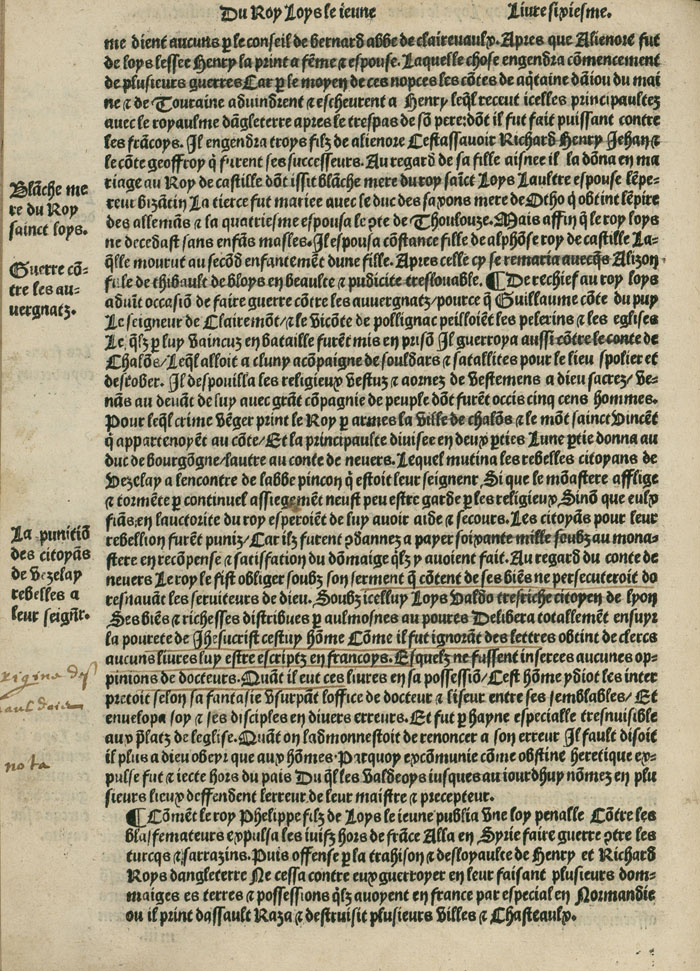 Du Roy Loys le ieune
Liure sixiesme.
me dient aucuns ꝑ le conseil de bernard abbe de clairevaulx. Apres que Alienore fut
de loys lessee Henry la print a fēme ⁊ espouse. Laquelle chose engendra cōmencement
de plusieurs guerres Car ꝑ le moyen de ces nopces les cōtes de aq̄taine dāiou du mai
ne ⁊ de Touraine aduindrent ⁊ escheurent a Henry leq̄l receut icelles principaultez
avec le royaulme dāgleterre apres le trespas de sō pere: dōt il fut fait puissant contre
les frācoys. Il engendra troys filz de alienore Cestassavoir Richard Henry Jehan ⁊
le cōte geoffroy q̄ furent ses successeurs. Au regard de sa fille aisnee il la dōna en ma
riage au Roy de castille dōt issit blāche mere du roy saīct Loys Laultre espouse lēpe-
reur bizātin La tierce fut mariee avec le duc des saxons mere de Otho q̄ obtint lēpire
des allemās ⁊ la quatriesme espousa le ꝯte de Thoulouze. Mais affin q̄ le roy loys
ne decedast sans enfās masles. Il espousa cōstance fille de alphōse roy de castille La-
q̄lle mourut au secōd enfantemēt dune fille. Apres celle cy se remaria avecq̄s Alizon
fille de thibault de bloys en beaulte ⁊ pudicite treslouable. ¶ De rechief au roy loys
aduīt occasiō de faire guerre cōtre les auvergnatz/ pource q̄ Guillaume cōte du puy
Le seigneur de Clairemōt/ ⁊ le vicōte de pollignac peilloiēt les pelerins ⁊ les eglises
Le. q̄lz ꝑ luy vaincuz en bataille furēt mis en prisō Il guerroya aussi cōtre le conte de
Chalōs/ Leq̄l alloit a cluny acōpaigne de souldars ⁊ satallites pour le lieu spolier et
destober. Il despouilla les religieux vestuz ⁊ aornez de vestemens a dieu sacrez/ ve-
nās au devāt de luy avec grāt cōpagnie de peuple dōt furēt occis cinq cens hommes.
Pour leq̄l crime vēger print le Roy ꝑ armes la ville de chalōs ⁊ le mōt sainct vincēt
q̄ appartenoyēt au cōte/ Et la principaulte divisee en deux ꝑties Lune ꝑtie donna au
duc de bourgōgne/ lautre au conte de nevers. Lequel mutina les rebelles citoyans de
vezelay a lencontre de labbe pincon q̄ estoit leur seignent. Si que le mōastere afflige
⁊ tormēte ꝑ continuel assiegemēt neust peu estre garde ꝑ les religieux Sinō que eulx
fiās en lauctorite du roy esperoiēt de luy avoir aide ⁊ secours. Les citoyās pour leur
rebellion furēt puniz/ Car ilz furent ꝯdannez a payer soixante mille soubz au mona-
stere en recōpense ⁊ satisfation du dōmaige q̄lz y avoient fait. Au regard du conte de
nevers Le roy le fist obliger soubz son serment q̄ cōtent de ses biēs ne persecuteroit do
resnavāt les serviteurs de dieu. Soubz icelluy Loys Valdo tresriche citoyen de lyon
Ses biēs ⁊ richesses distribues ꝑ aulmosnes au poures Delibera totallement ensuyr
la pourete de Jhesucrist cestuy hōme Cōme il fut ignorāt des lettres obtint de clercs
aucuns livres luy estre escriptz en francoys. Esquelz ne fussent inserees aucunes op-
pinions de docteurs. Quāt il eut ces livres en sa possessiō/ Cest hōme ydiot les inter
pretoit selon sa fantasie vsurpāt loffice de docteur ⁊ liseur entre ses semblables/ Et
envelopa soy ⁊ ses disciples en divers erreurs. Et fut ꝑ hayne especialle tresnuisible
aux p̄latz de leglise. Quāt on ladmonnestoit de renoncer a son erreur Il fault disoit
il plus a dieu obeyr que aux hōmes. Parquoy excōmunie cōme obstine heretique ex-
pulse fut ⁊ iecte hors du pais Du q̄l les Valdeoys iusques au iourdhuy nōmez en plu
sieurs lieux deffendent lerreur de leur maistre ⁊ precepteur.
¶ Cōmēt le roy Phelippe filz de Loys le ieune publia vne loy penalle Cōtre les
blasfemateurs expulsa les iuifz hors de frāce Alla en Syrie faire guerre ꝯtre les
turcqs ⁊ sarrazins. Puis offense ꝑ la trahison ⁊ desloyaulte de Henry et Richard
Roys dangleterre Ne cessa contre eux guerroyer en leur faisant plusieurs dom-
maiges es terres ⁊ possessions q̄lz avoyent en france par especial en Normandie
ou il print dassault Raza ⁊ destruisit plusieurs villes ⁊ Chasteaulx.
Blāche me
re du Roy
sainct loys.
Guerre cō-
tre les au-
vergnatz.
La punitiō
des citoyās
de vezelay
rebelles a
leur seignr̄.
origine des
vauldois
nota